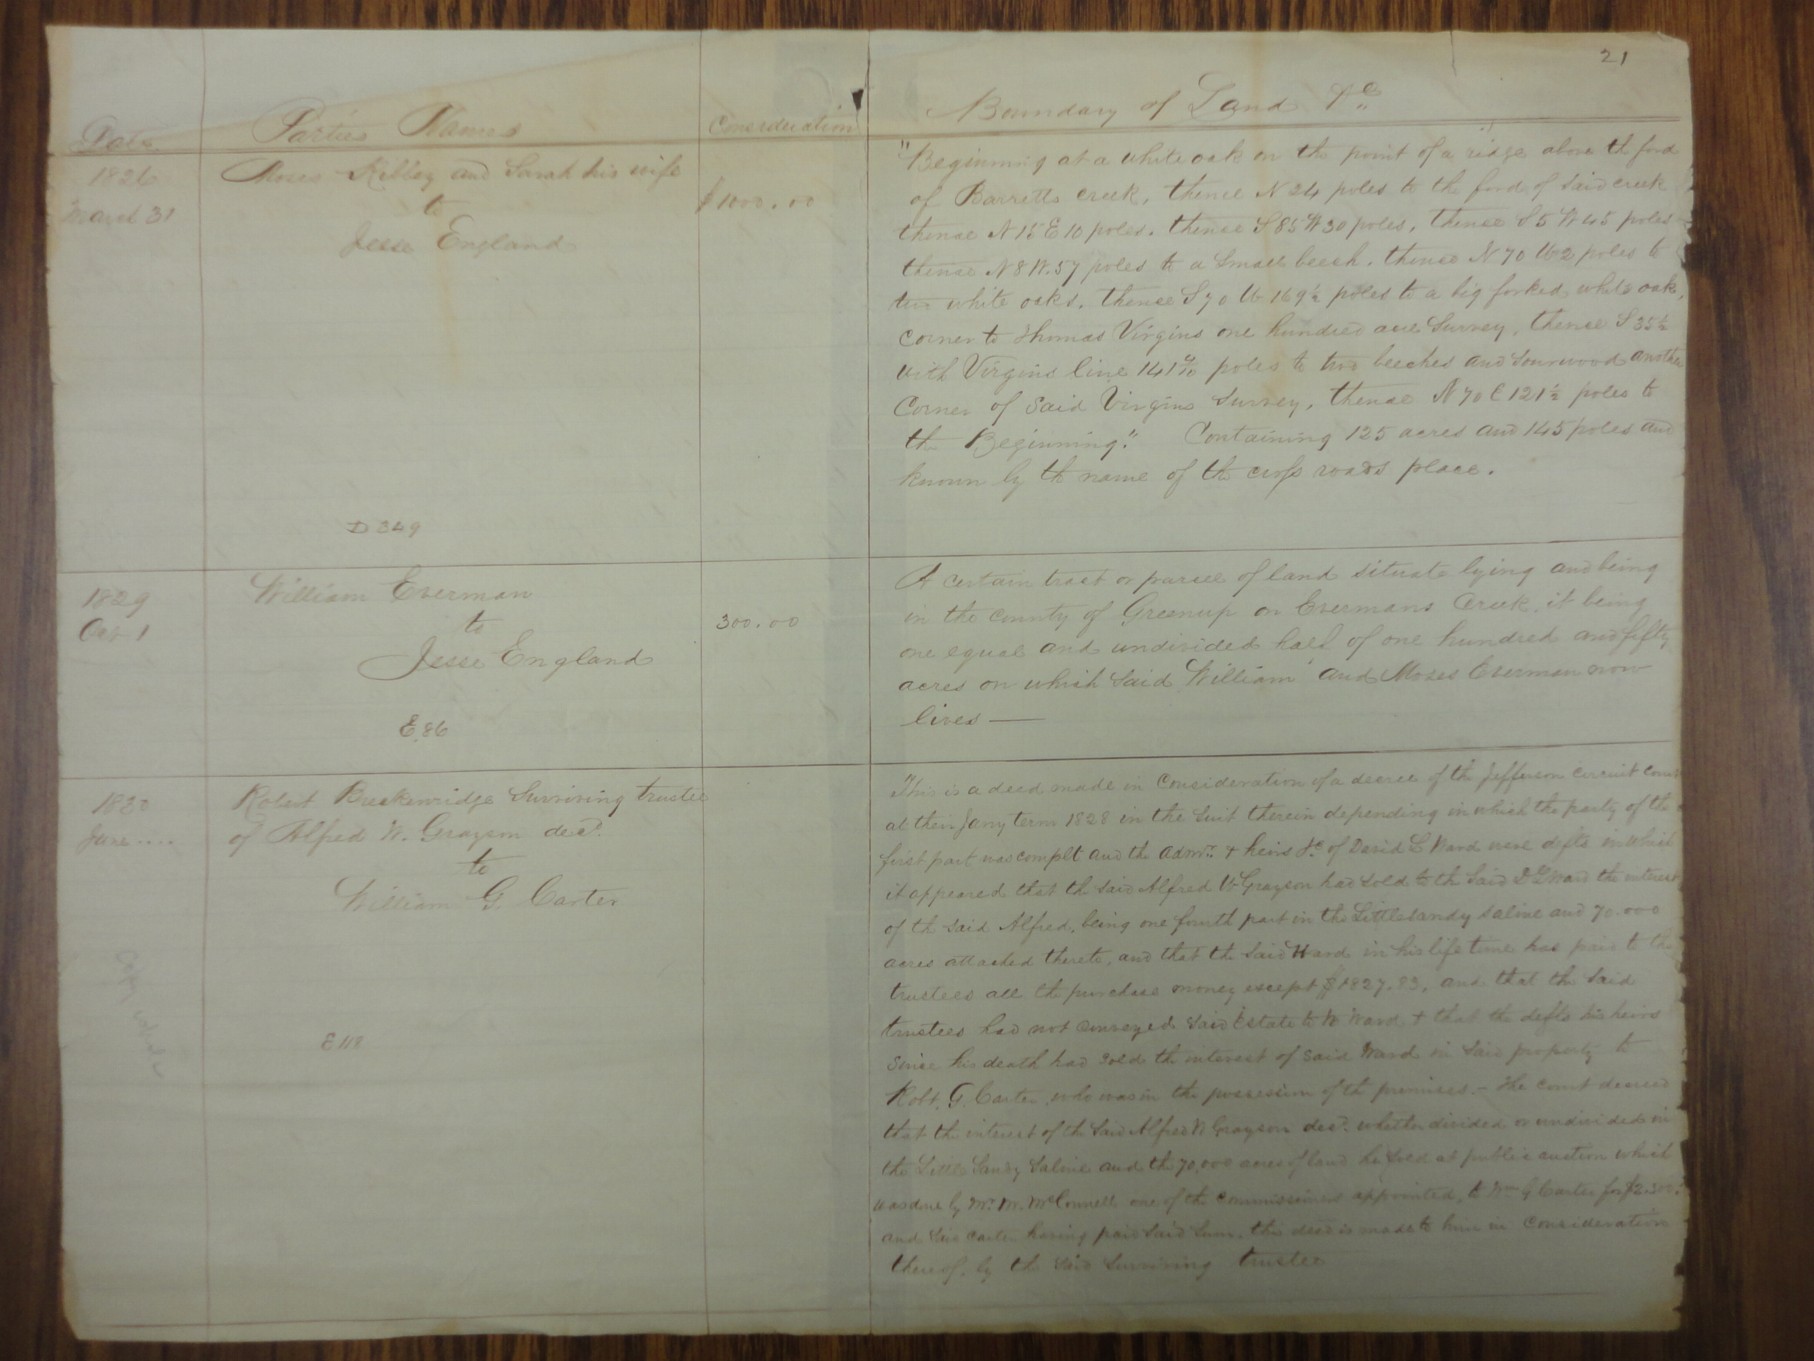 21
Date Parties Names Consideration Boundary of Land &c
1826 Moses Kibbey and Sarah his wife
March 31 to $1000.00
Jesse England
"Beginning at a white oak on the point of a ridge above the ford
of Barretts creek, thence N 24 poles to the ford of said creek
thence N 15 E 10 poles. thence S 85 W 30 poles, thence S 5 W 45 poles
thence N 8 W. 57 poles to a small beech. thence N 70 W 2 poles to
two white oaks. thence S 70 W 169½ poles to a big forked white oak,
corner to Thomas Virgins one hundred acre Survey, thence S 35½
with Virgins line 141 poles to two beeches and sourwood another
Corner of said Virgins Survey, thence N 70 E 121½ poles to
the Beginning." Containing 125 acres and 145 poles and
known by th name of th cross roads place.
D 349
1829 William Everman
Oct 1 to 300.00
Jesse England
E 86
A certain tract or parcel of land situate lying and being
in the county of Greenup on Evermans Creek, it being
one equal and undivided half of one hundred and fifty
acres on which said William and Moses Everman now
lives —
Robert Breckenridge Surviving trustee
June .... of Alfred W. Grayson decd.
to
William G. Carter
E 118
"This is a deed made in Consideration of a decree of th Jefferson circuit court
at their Jany term 1828 in the Suit therein depending in which the party of the
first part was complt and the admrs + heirs &c of David L Ward were defts in which
it appeared that th said Alfred W Grayson had sold to th said D L Ward the interest
of th said Alfred, being one fourth part in the Little Sandy Saline and 70.000
acres attached thereto, and that th said Ward in his life time had paid to the
trustees all th purchase money except $1827.83, and that th said
trustees had not conveyed said Estate to Ward + that the defts his heirs
since his death had sold th interest of said Ward in said property to
Robt. G. Carter, who was in the possession of th premises. – The court decreed
that th interest of th said Alfred W Grayson decd. whether divided or undivided in
the Little Sandy Saline and th 70,000 acres of land be sold at public auction which
was done by Mr. M. McConnell one of the commissioners appointed, to Wm G Carter for
and said Carter having paid said sum, this deed is made to him in consideration
thereof, by th said surviving trustee